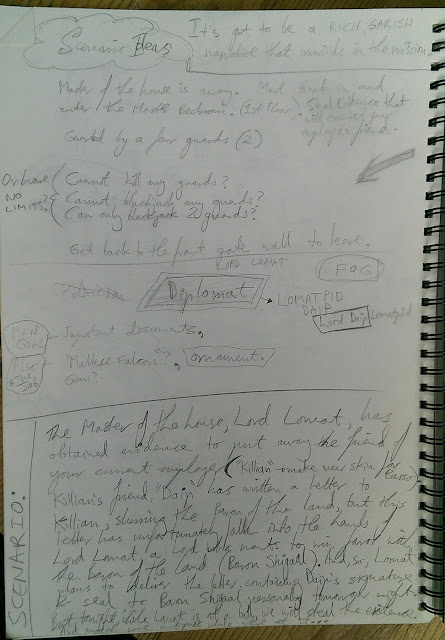 Scenario Ideas
It's got to be a RICH, GARISH
narrative that unwinds in the mission.
Master of the house is away. Must climb in and
enter the Master Bedroom. (1st Floor). Steal Evidence that
will convict your
employers friend.
Guarded by a few guards (2)
Or have
NO
LIMITS?
Cannot kill any guards?
Cannot blackjack any guards?
Can only blackjack 2 guards?
Get back to the front gate wall to leave.
LORD LOMAT
FOG
Politician
Diplomat
LOMATPID
DAIP
Lord Daip Lomatpid
MAIN
GOAL
Important documents,
Also
"Maltese Falcon"?, ornament.
Gem?
SCENARIO:
The Master of the house, Lord Lomat, has
obtained evidence to put away the friend of
your current employer ("Killian" - make new skin for Basso)
Killian's friend, "Daip" has written a letter to
Killian, slurring the Baron of the land, but this
letter has unfortunately fallen into the hands of
Lord Lomat, a Lord who wants to win favor with
the Baron of the land (Baron Shigal). And, so, Lomat
plans to deliver the letter containing Daip's signature
& seal to Baron Shigal personally tomorrow night.
But tonight, while Lomat is at a ball, we will steal the evidence.